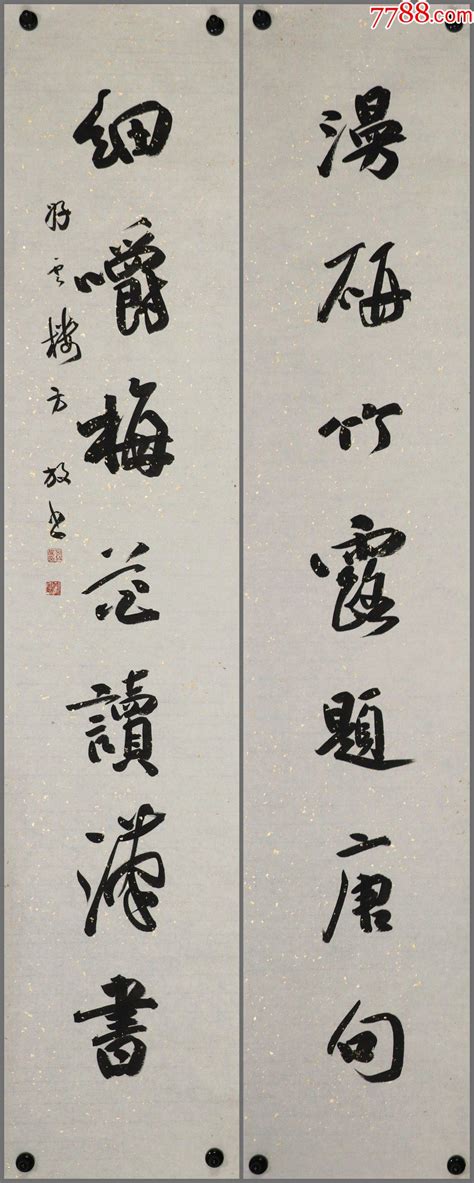 7788.com
漫研竹露題唐句
細嚼梅花讀漢書
好雲樓方放书